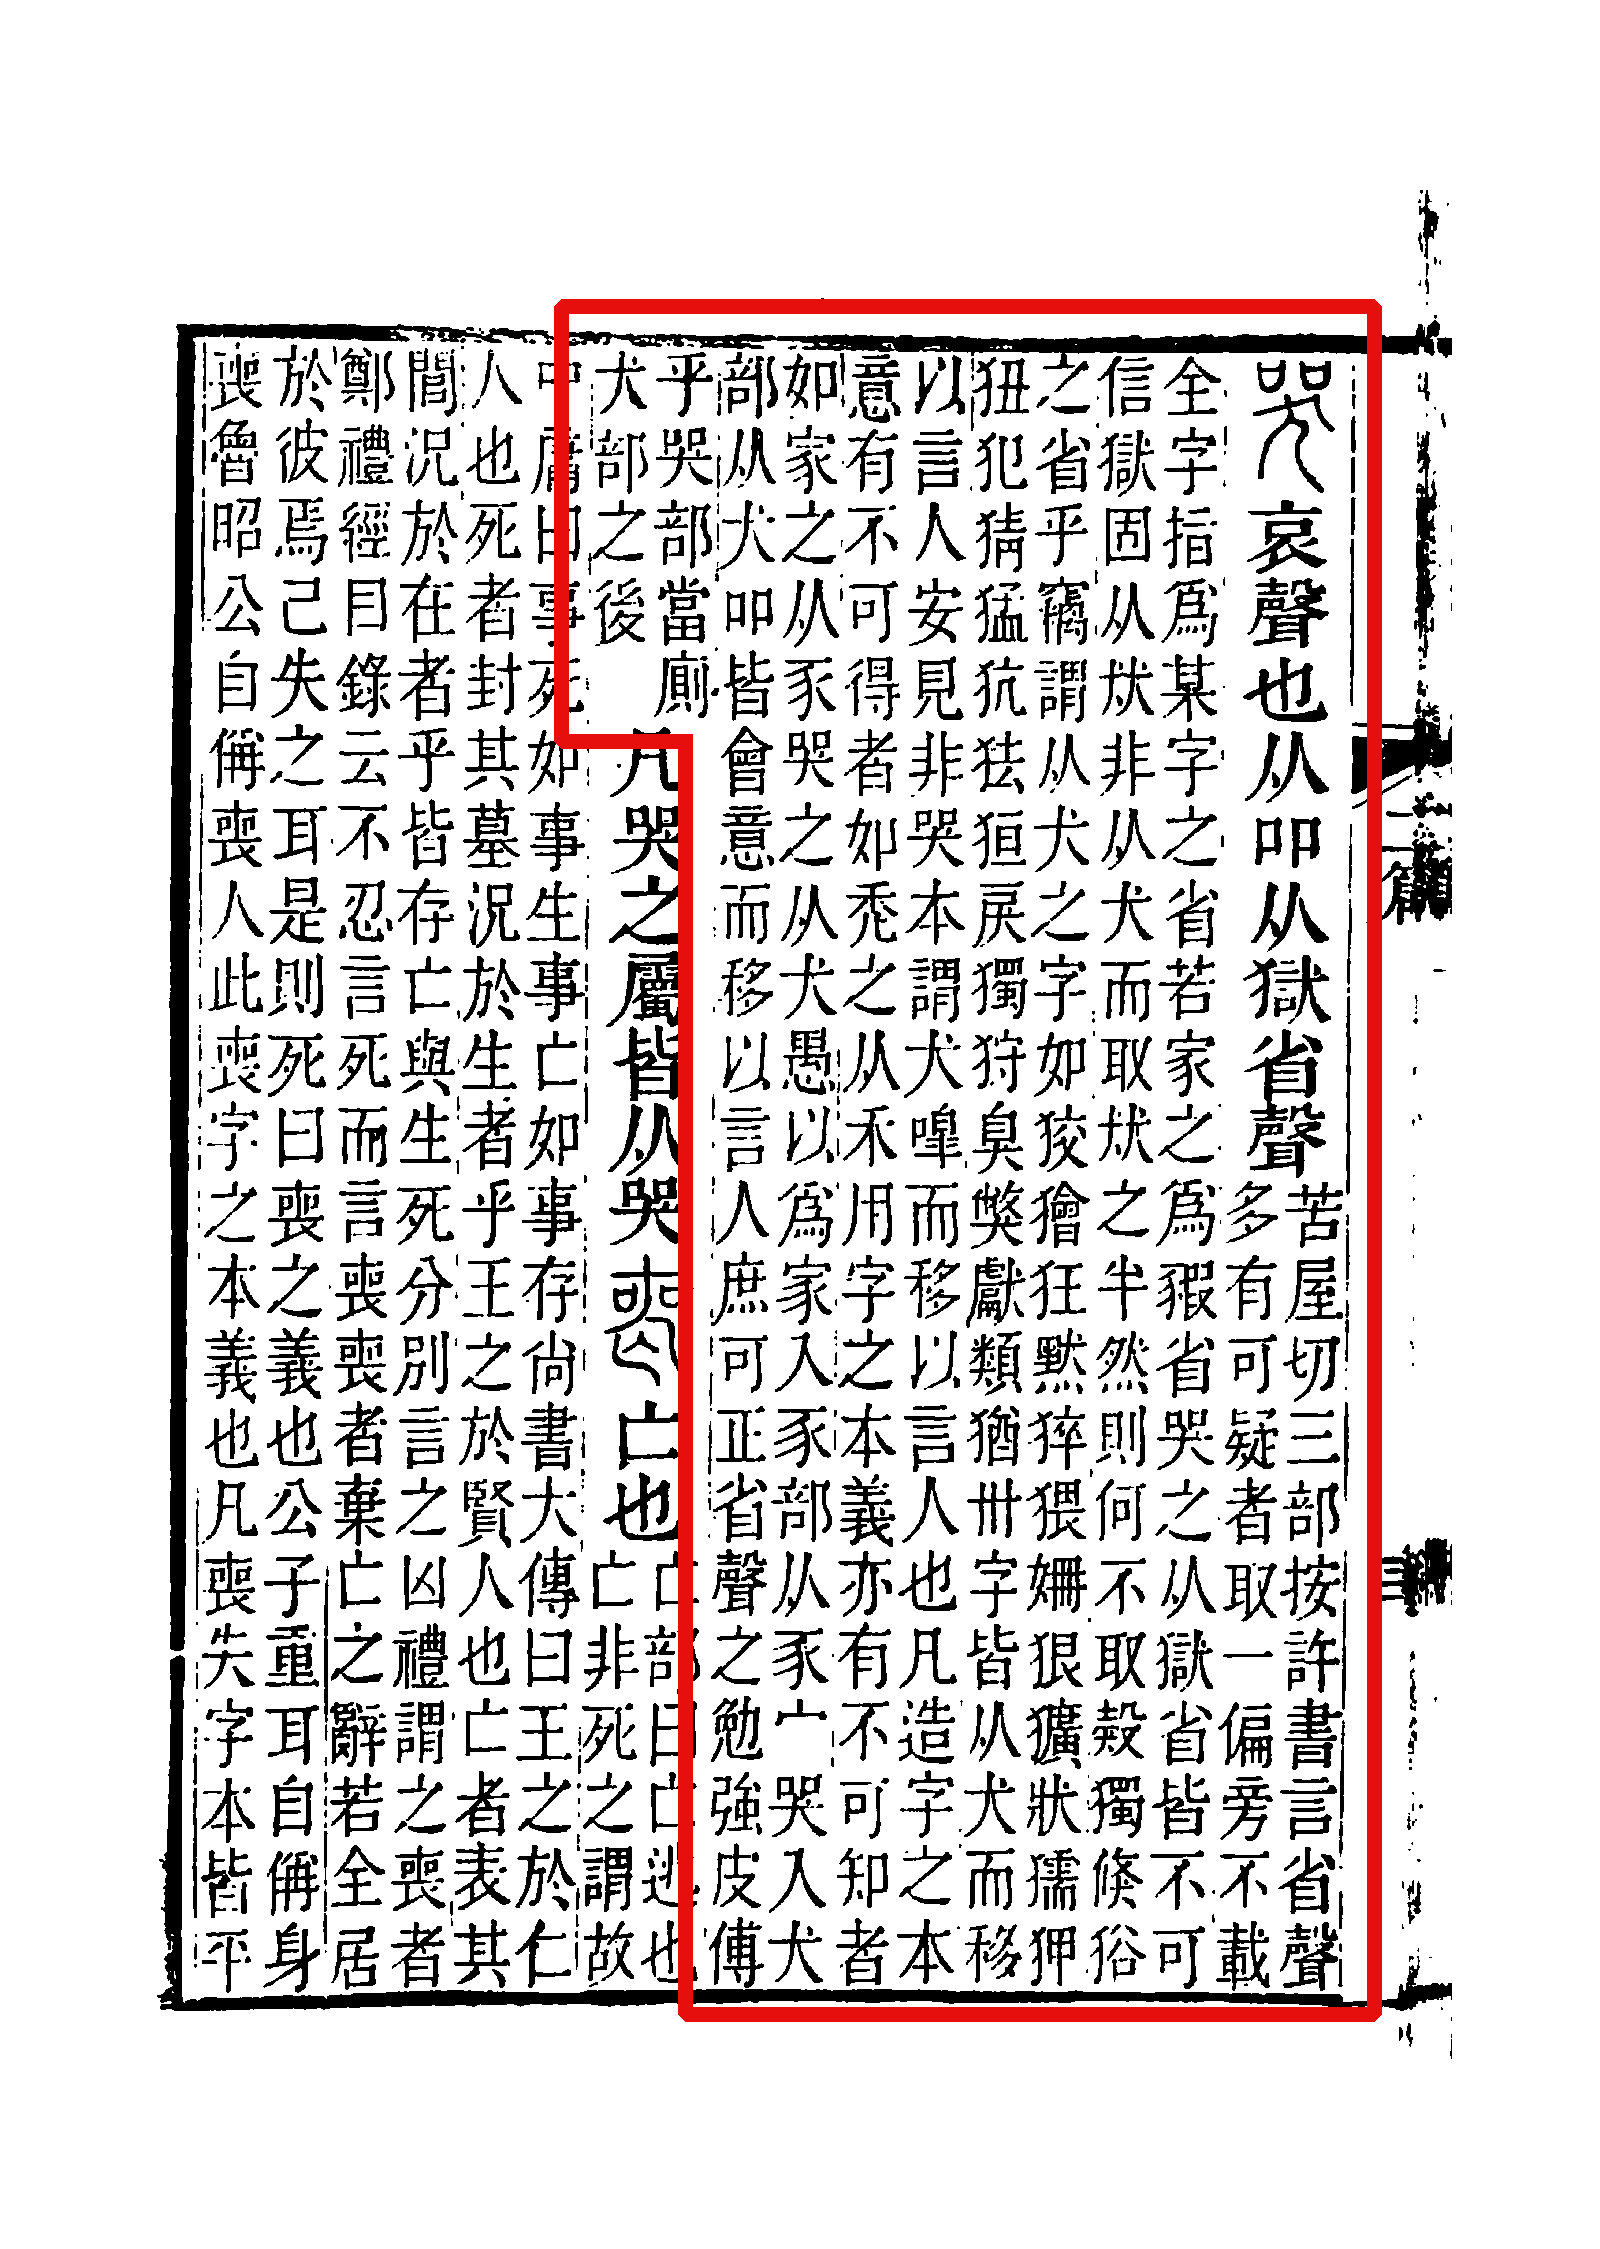 哭哀聲也从吅从獄省聲
苦屋切三部按許書言省聲
多有可疑者取一偏旁不載
全字指爲某字之省若家之爲豭省哭之从獄省皆不可
信獄固从㹜非从犬而取㹜之半然則何不取㲄獨倏俗
之省乎竊謂从犬之字如狡獪狂默猝猥姍狠獷狀獳狎
狃犯猜猛犺㹤狟戾獨狩臭獘獻類猶卅字皆从犬而移
以言人安見非哭本謂犬嘷而移以言人也凡造字之本
意有不可得者如禿之从禾用字之本義亦有不可知者
如家之从豕哭之从犬愚以爲家入豕部从豕宀哭入犬
部从犬吅皆會意而移以言人庶可正省聲之勉強皮傅
乎哭部當廁
犬部之後
凡哭之屬皆从哭
喪亡也
亡部曰亡逃也
亡非死之謂故
中庸曰事死如事生事亡如事存尙書大傳曰王之於仁
人也死者封其墓況於生者乎王之於賢人也亡者表其
閭況於在者乎皆存亡與生死分別言之凶禮謂之喪者
鄭禮經目錄云不忍言死而言喪喪者棄亡之辭若全居
於彼焉己失之耳是則死曰喪之義也公子重耳自偁身
喪魯昭公自偁喪人此喪字之本義也凡喪失字本皆平